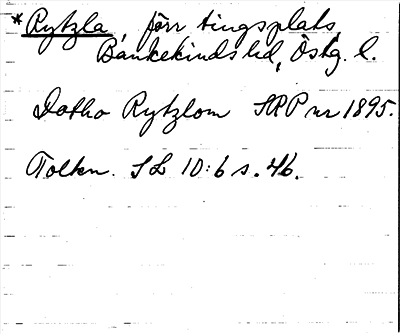 *Rytzla, förr tingsplats,
Bankekinds hd, Östg. l.
Datho Rytzlom SRP nr 1895.
Tolkn. SL 10:6 s. 46.